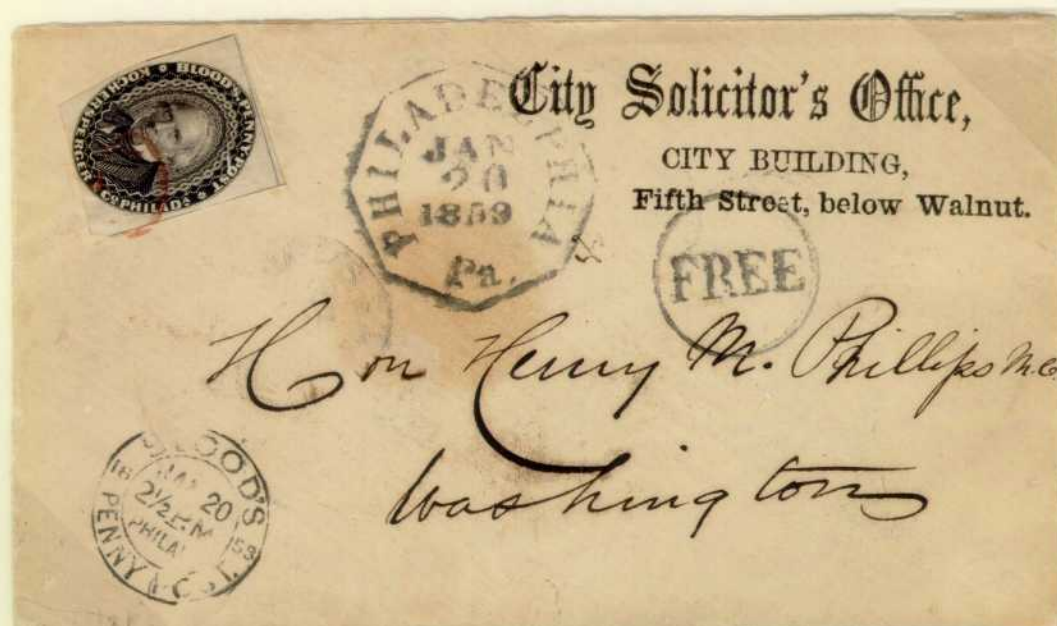 BLOOD'S PENNY POST
KOCHERSPERGER & Co. PHILADA.
PHILADELPHIA
JAN
20
1859
Pa.
City Solicitor's Office,
CITY BUILDING,
Fifth Street, below Walnut.
FREE
Hon Henry M. Phillips M.C.
Washington
BLOOD'S
JAN 20
18
2½ P.M
PHILA
PENNY POST